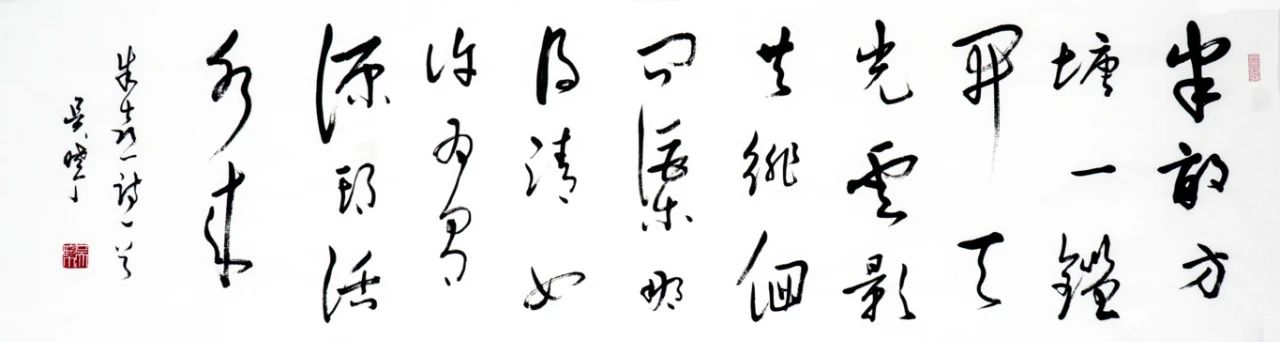 半畝方
塘一鑑
開天
光雲影
共徘徊
問渠那
得清如
許為有
源頭活
水來
朱熹詩一首
吳曉丁